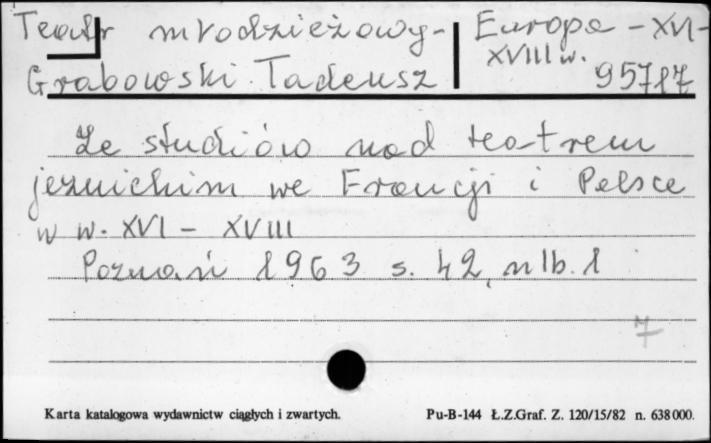 Teatr młodzieżowy - Europa - XVI-
XVIII w.
Grabowski Tadeusz 95717
Ze studiów nad teatrem
jezuickim we Francji i Polsce
w w. XVI - XVIII
Poznań 1963 s. 42, nlb. 1
7
Karta katalogowa wydawnictw ciągłych i zwartych. Pu-B-144 Ł.Z.Graf. Z. 120/15/82 n. 638000.